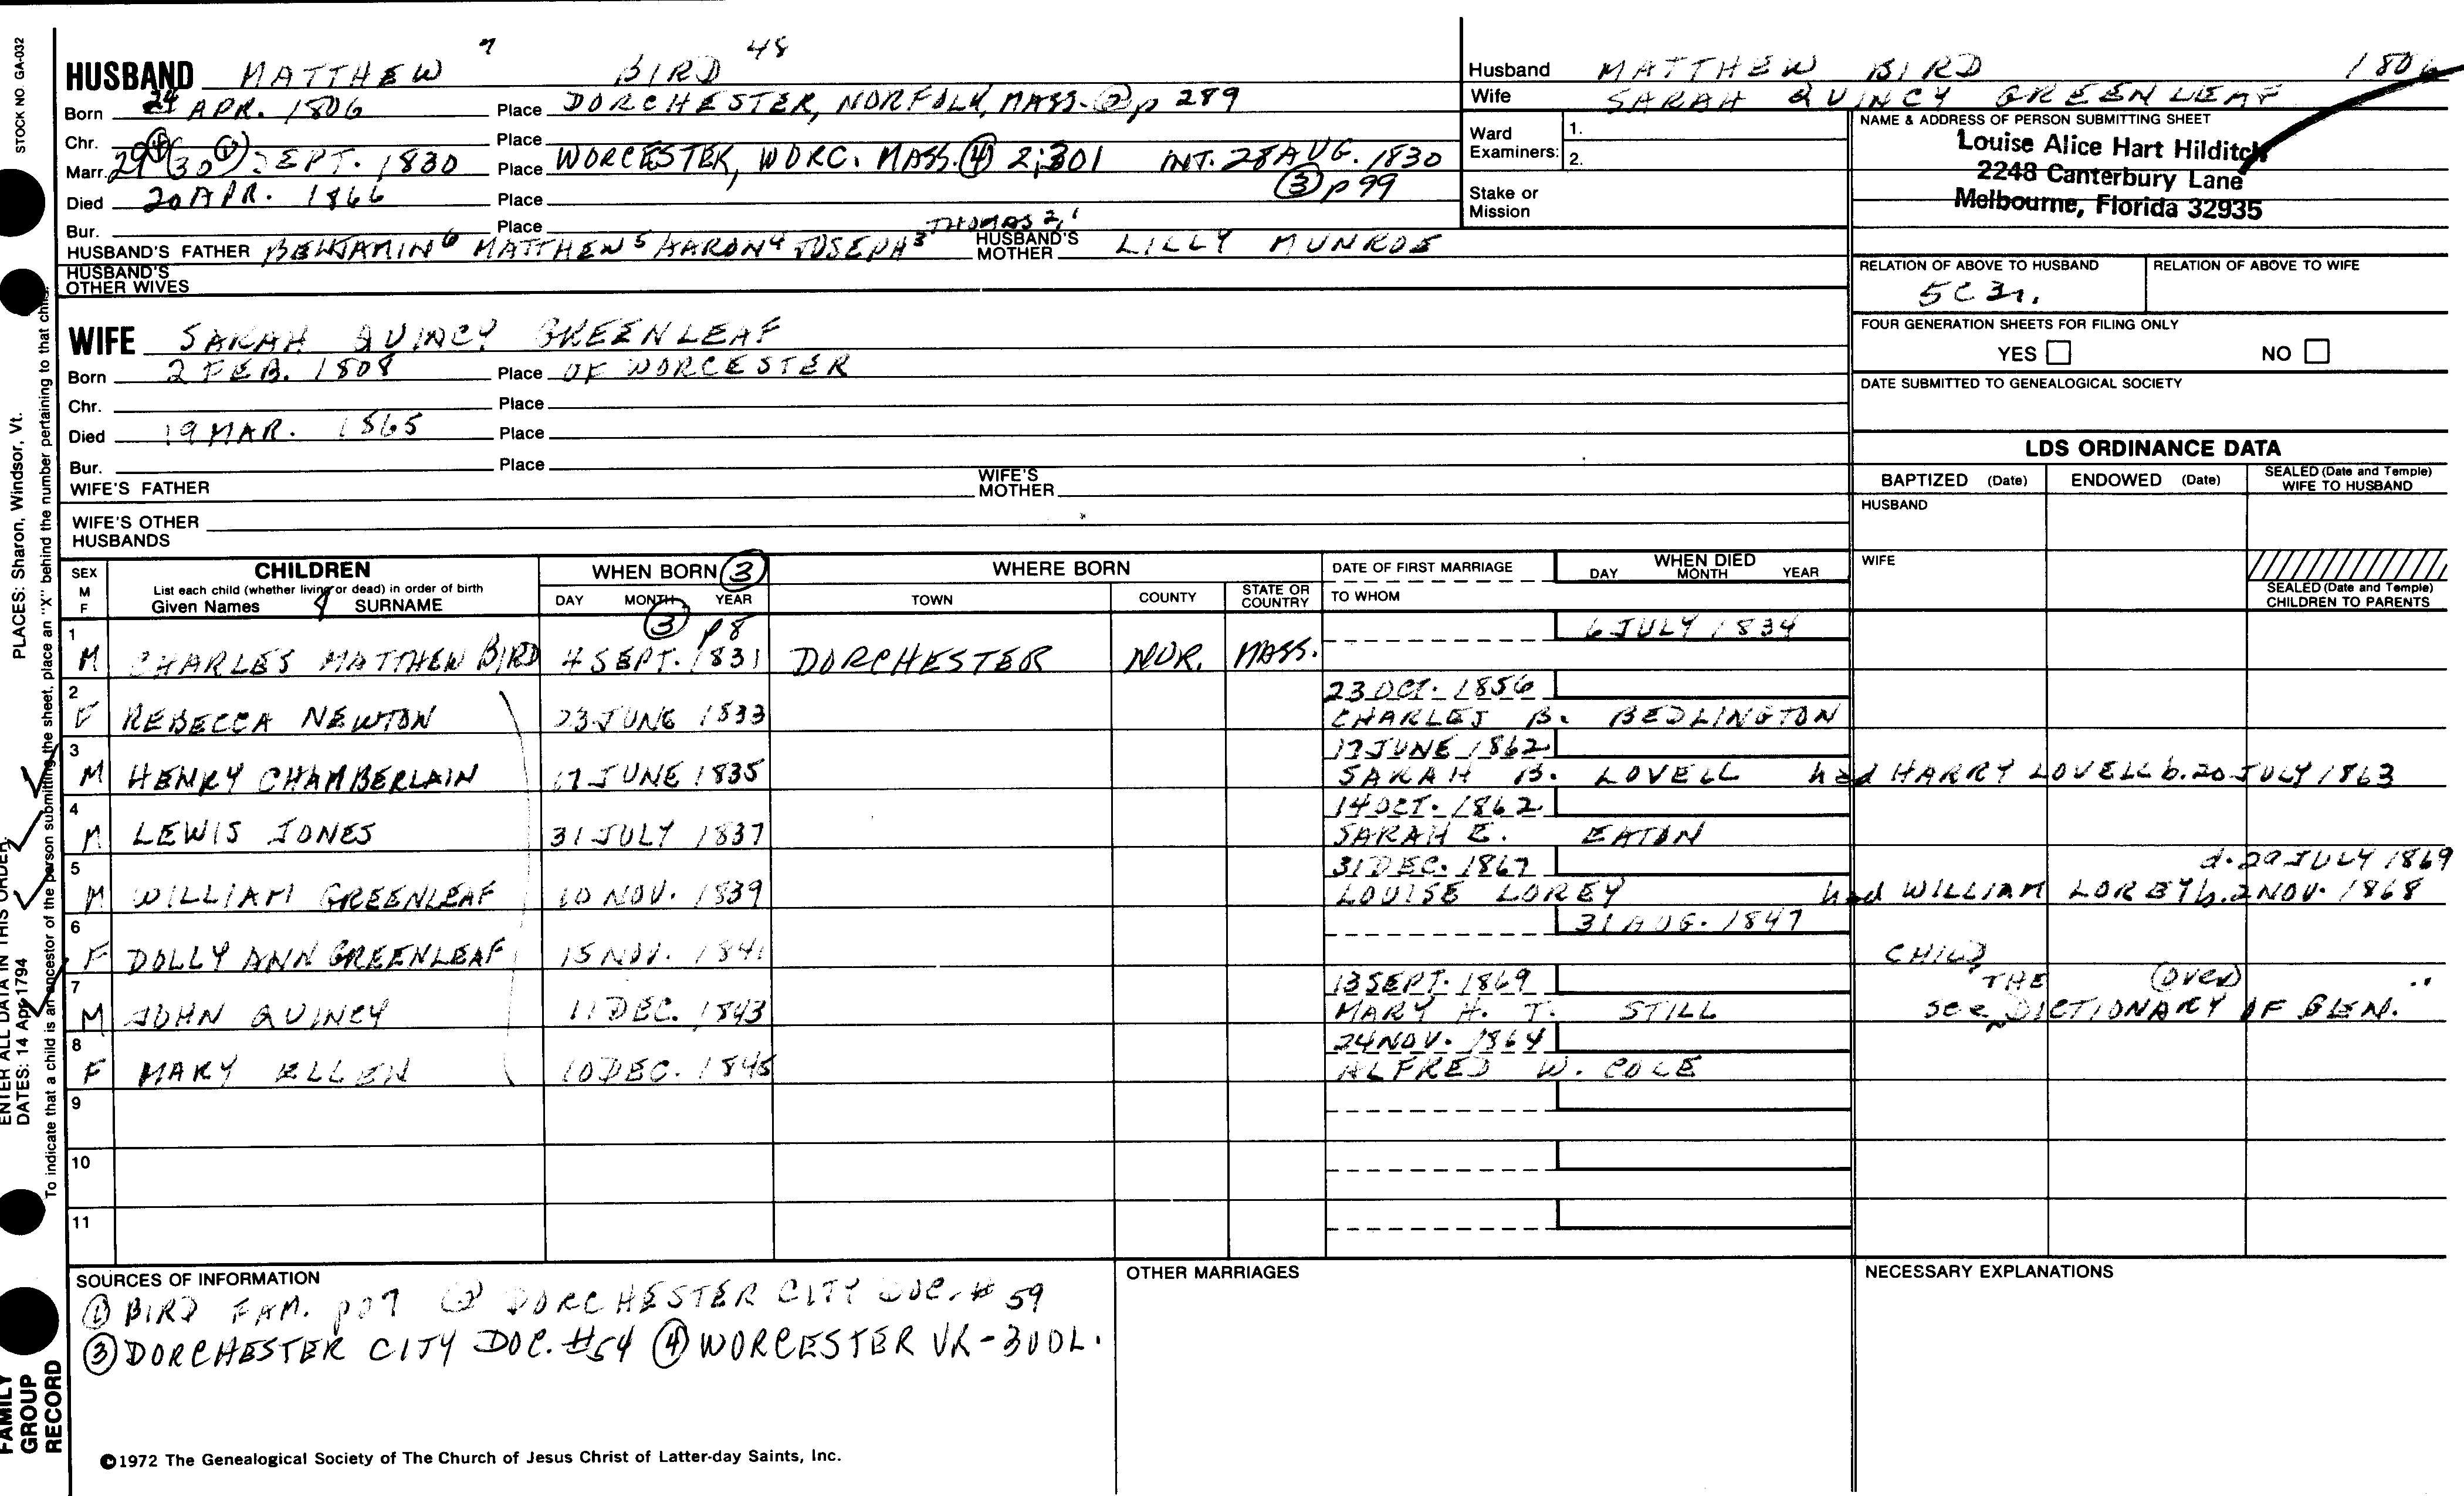 STOCK NO. GA-032
HUSBAND MATTHEW 7 BIRD 48
Born 24 APR. 1806 Place DORCHESTER, NORFOLK, MASS. ② p 289
Chr. Place
Marr. 29④ (30①) SEPT. 1830 Place WORCESTER, WORC. MASS. ④ 2:301 INT. 28 AUG. 1830
③ p 99
Died 20 APR. 1866 Place
Bur. Place
THOMAS 2,1
HUSBAND'S FATHER BENJAMIN 6 MATTHEW 5 AARON 4 JOSEPH 3 HUSBAND'S MOTHER LILLY MUNROE
HUSBAND'S OTHER WIVES
Husband MATTHEW BIRD 1806
Wife SARAH QUINCY GREENLEAF
Ward Examiners: 1.
2.
Stake or Mission
NAME & ADDRESS OF PERSON SUBMITTING SHEET
Louise Alice Hart Hilditch
2248 Canterbury Lane
Melbourne, Florida 32935
RELATION OF ABOVE TO HUSBAND RELATION OF ABOVE TO WIFE
5C 3r.
FOUR GENERATION SHEETS FOR FILING ONLY
YES NO
DATE SUBMITTED TO GENEALOGICAL SOCIETY
WIFE SARAH QUINCY GREENLEAF
Born 2 FEB. 1808 Place OF WORCESTER
Chr. Place
Died 19 MAR. 1865 Place
Bur. Place
WIFE'S FATHER WIFE'S MOTHER
WIFE'S OTHER HUSBANDS
LDS ORDINANCE DATA
BAPTIZED (Date) ENDOWED (Date) SEALED (Date and Temple) WIFE TO HUSBAND
HUSBAND
WIFE
SEALED (Date and Temple) CHILDREN TO PARENTS
SEX M F
CHILDREN
List each child (whether living or dead) in order of birth
Given Names SURNAME
WHEN BORN ③
DAY MONTH YEAR
WHERE BORN
TOWN COUNTY STATE OR COUNTRY
DATE OF FIRST MARRIAGE
TO WHOM
WHEN DIED
DAY MONTH YEAR
③ p 8
1 6 JULY 1834
M CHARLES MATTHEW BIRD 4 SEPT. 1831 DORCHESTER NOR. MASS.
2 23 OCT. 1856
F REBECCA NEWTON 23 JUNE 1833 CHARLES B. BEDLINGTON
3 17 JUNE 1862
M HENRY CHAMBERLAIN 17 JUNE 1835 SARAH B. LOVELL had HARRY LOVELL b. 20 JULY 1863
4 14 OCT. 1862
M LEWIS JONES 31 JULY 1837 SARAH E. EATON
5 31 DEC. 1867 d. 29 JULY 1869
M WILLIAM GREENLEAF 10 NOV. 1839 LOUISE LOREY had WILLIAM LOREY b. 2 NOV. 1868
6 31 AUG. 1847
F DOLLY ANN GREENLEAF 15 NOV. 1841 CHILD
7 13 SEPT. 1869 THE (over)
M JOHN QUINCY 11 DEC. 1843 MARY H. T. STILL see DICTIONARY OF GEN.
8 24 NOV. 1864
F MARY ELLEN 10 DEC. 1845 ALFRED W. COLE
9
10
11
SOURCES OF INFORMATION
① BIRD FAM. ② DORCHESTER CITY DOC. # 59
③ DORCHESTER CITY DOC. #54 ④ WORCESTER VR-
OTHER MARRIAGES
NECESSARY EXPLANATIONS
©1972 The Genealogical Society of The Church of Jesus Christ of Latter-day Saints, Inc.
FAMILY GROUP RECORD
ENTER ALL DATA IN THIS ORDER:
DATES: 14 Apr 1794
PLACES: Sharon, Windsor, Vt.
To indicate that a child is an ancestor of the person submitting the sheet, place an "X" behind the number pertaining to that child.